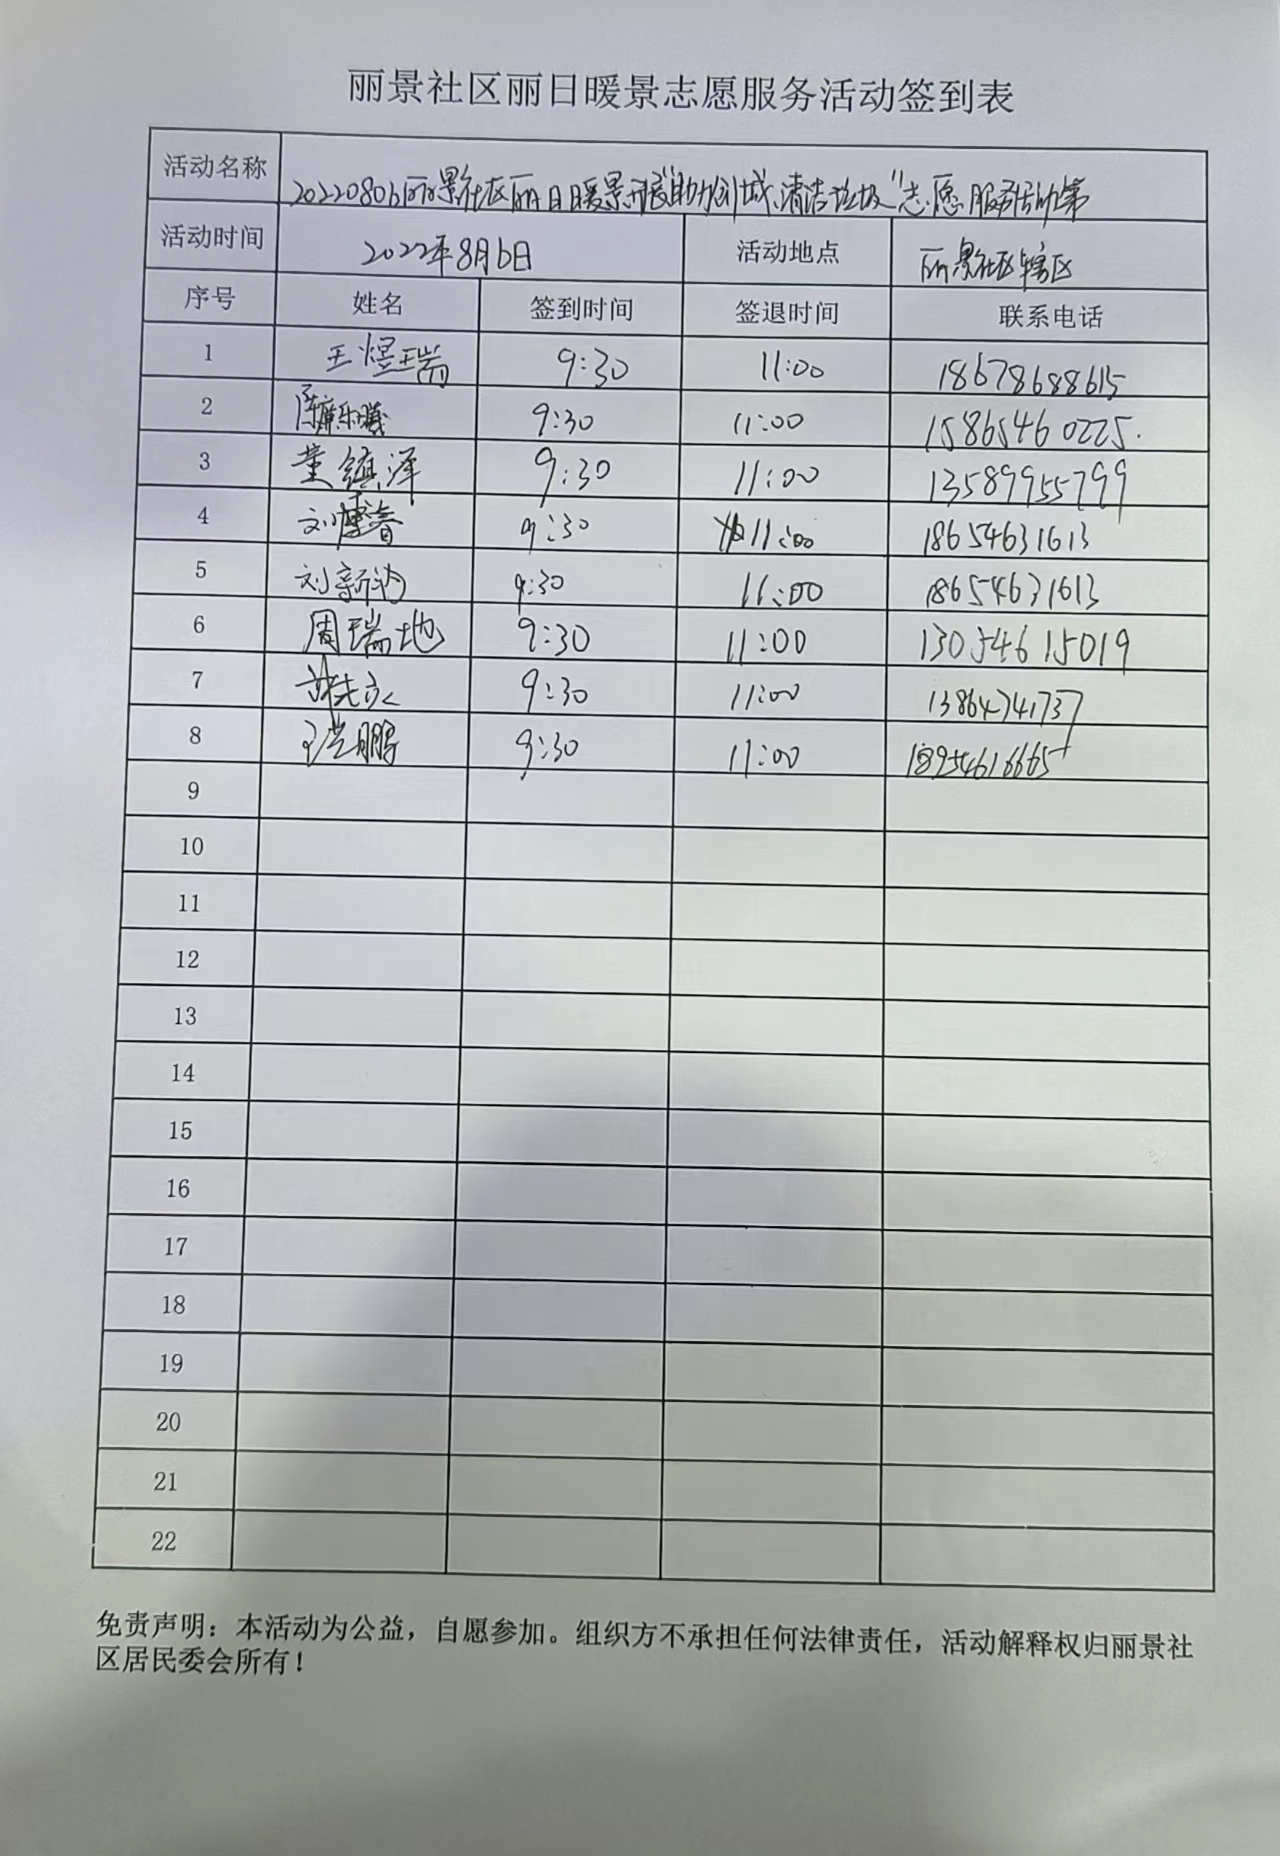 丽景社区丽日暖景志愿服务活动签到表
活动名称 20220806丽景社区丽日暖景开展"助力创城、清洁垃圾"志愿服务活动第
活动时间 2022年8月6日 活动地点 丽景社区辖区
序号 姓名 签到时间 签退时间 联系电话
1 王煜瑞 9:30 11:00 18678688615
2 9:30 11:00 15865460225.
3 董镇泽 9:30 11:00 13589955799
4 刘 9:30 11:00 18654631613
5 刘新 9:30 11:00 18654631613
6 周瑞地 9:30 11:00 13054615019
7 9:30 11:00 13864741737
8 鹏 9:30 11:00 18954616665
9
10
11
12
13
14
15
16
17
18
19
20
21
22
免责声明：本活动为公益，自愿参加。组织方不承担任何法律责任，活动解释权归丽景社
区居民委会所有！